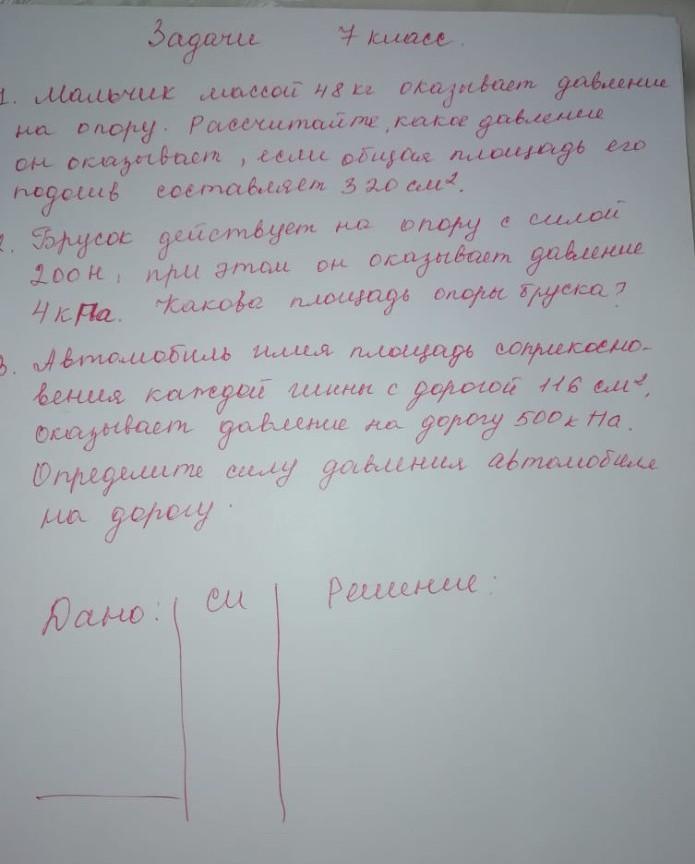 Задачи 7 класс.
1. Мальчик массой 48 кг оказывает давление
на опору. Рассчитайте, какое давление
он оказывает, если общая площадь его
подошв составляет 320 см².
2. Брусок действует на опору с силой
200 Н, при этом он оказывает давление
4 кПа. Какова площадь опоры бруска?
3. Автомобиль имея площадь соприкосно-
вения каждой шины с дорогой 116 см²,
оказывает давление на дорогу 500 к Па.
Определите силу давления автомобиля
на дорогу.
Дано: СИ Решение: